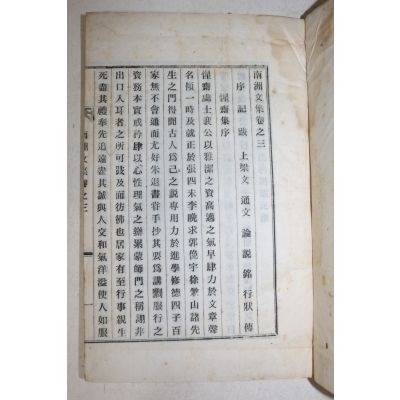 南洲文集卷之三
序 記 跋 上梁文 通文 論 說 銘 行狀 傳
惺齋集序
惺齋處士裵公以雅潔之資高邁之氣早肆力於文章聲
名傾一時及就正於張四未李晩求郭俛宇徐崶山諸先
生之門得聞古人爲己之說專用力於進學修德四子百
家無不會通而尤好朱退書嘗手抄其要爲講劘服行之
資務本實戒矜肆以心性理氣之辦累蒙師門之稱詡非
出口入耳者之所可跂及而彷彿也居家有至行事親生
死盡其禮奉先追遠盡其誠與人交和氣洋溢使人如服
南洲文集卷之三